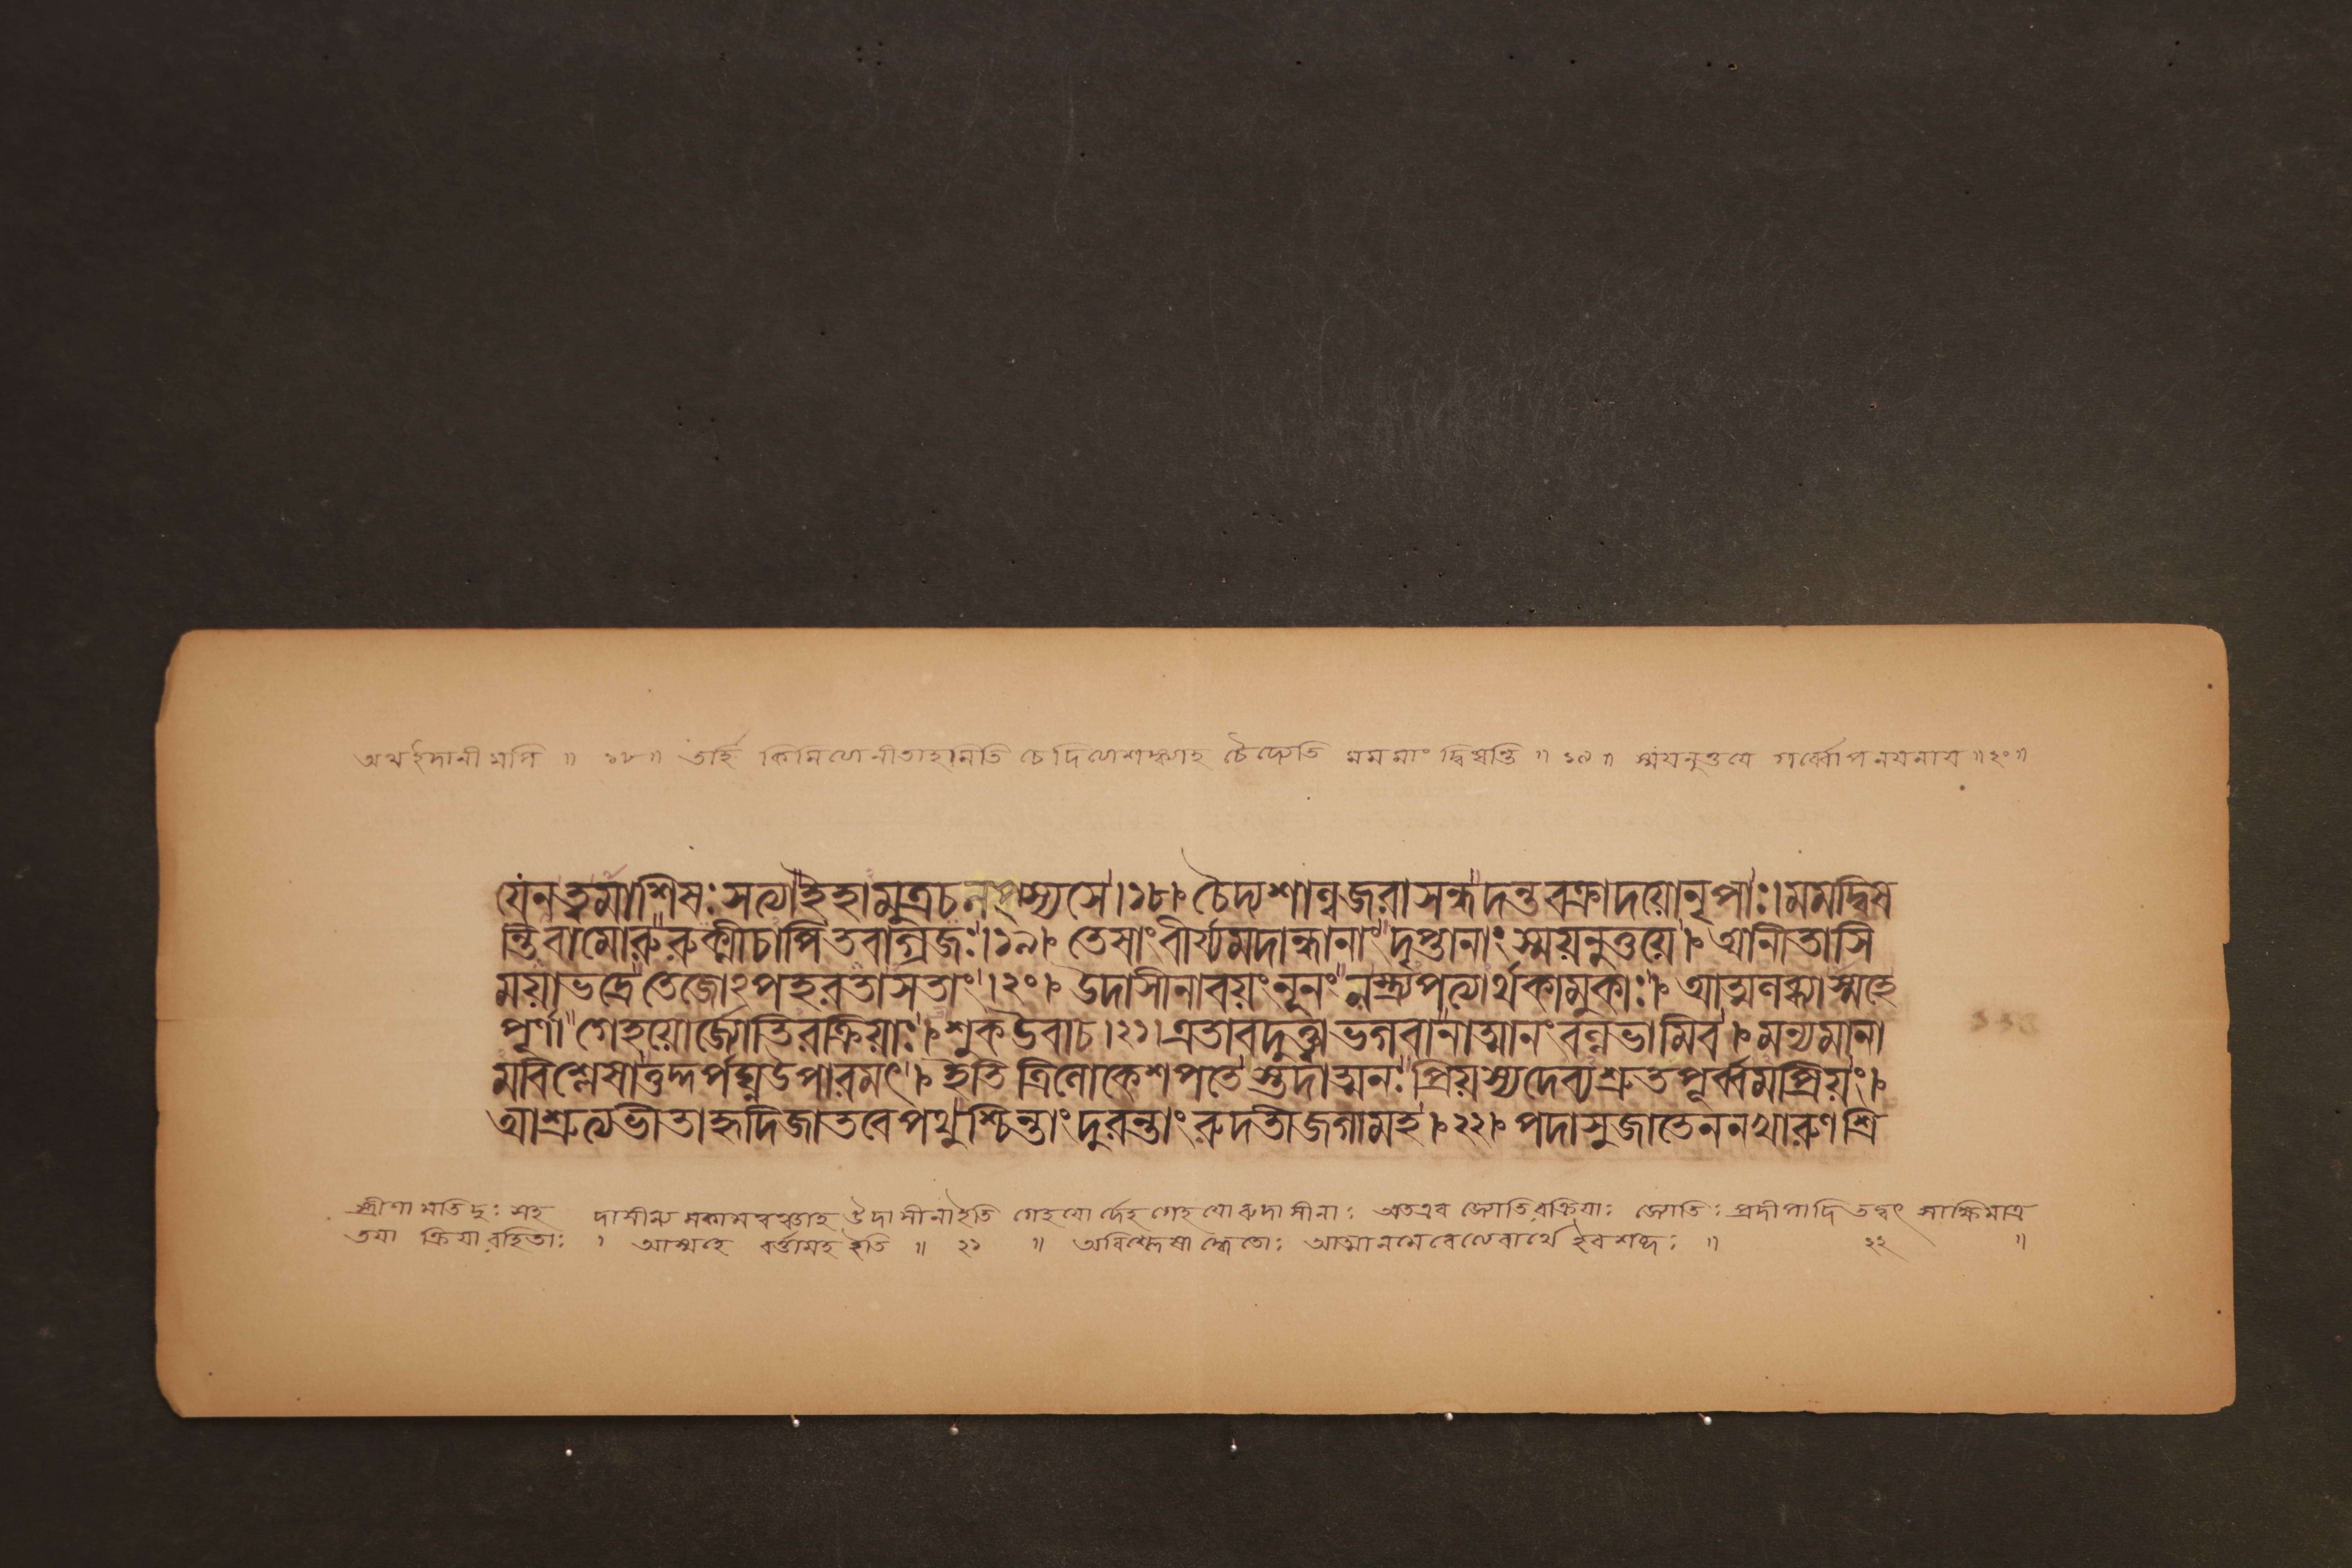 অথ ইদানীমপি ॥ ১৮ ॥ তর্হি কিমিত্যেনীতাহমিতি চেদিত্যেশঙ্ক্যাহ চৈদ্যেতি মম মাং দ্বিষন্তি ॥ ১৯ ॥ স্ময়নুত্তয়ে গর্ব্বাপনয়নায় ॥ ২০ ॥
যেন ত্বমাশিষঃ সত্যা ইহামুত্র চ লপ্স্যসে । ১৮ । চৈদ্যশাল্বজরাসন্ধদন্তবক্রাদয়ো নৃপাঃ । মম দ্বিষ
ন্তি বামোরু রুক্মী চাপি তবাগ্রজঃ । ১৯ । তেষাং বীর্য্যমদান্ধানাং দৃপ্তানাং স্ময়নুত্তয়ে । আনীতাসি
ময়া ভদ্রে তেজোঽপহরতাসতাং । ২০ । উদাসীনা বয়ং নূনং ন স্ত্র্যপত্যার্থকামুকাঃ । আত্মলব্ধ্যাস্মহে
পূর্ণা গেহয়োর্জ্যোতিরক্রিয়াঃ । শুক উবাচ । ২১ । এতাবদুক্ত্বা ভগবানাত্মানং বল্লভামিব । মন্যমানা
মবিশ্লেষাত্তদ্দর্পঘ্ন উপারমৎ । ইতি ত্রিলোকেশপতেস্তদাত্মনঃ প্রিয়স্য দেব্যশ্রুতপূর্ব্বমপ্রিয়ং ।
আশ্রুত্য ভীতা হৃদি জাতবেপথুশ্চিন্তাং দুরন্তাং রুদতী জগাম হ । ২২ । পদা সুজাতেন নখারুণশ্রি
স্ত্রীণামতিদুঃসহ দাসীন্য মকামবত্ত্বাহ উদাসীনা ইতি গেহয়োর্দেহগেহয়োরুদাসীনাঃ অতএব জ্যোতিরক্রিয়াঃ জ্যোতিঃ প্রদীপাদি তদ্বৎ সাক্ষিমাত্র
তয়া ক্রিয়ারহিতাঃ । আস্মহে বর্ত্তামহ ইতি ॥ ২১ ॥ অবিশ্লেষাদ্ধেতোঃ আত্মানমেবেত্যেবার্থে ইব শব্দঃ ॥ ২২ ॥